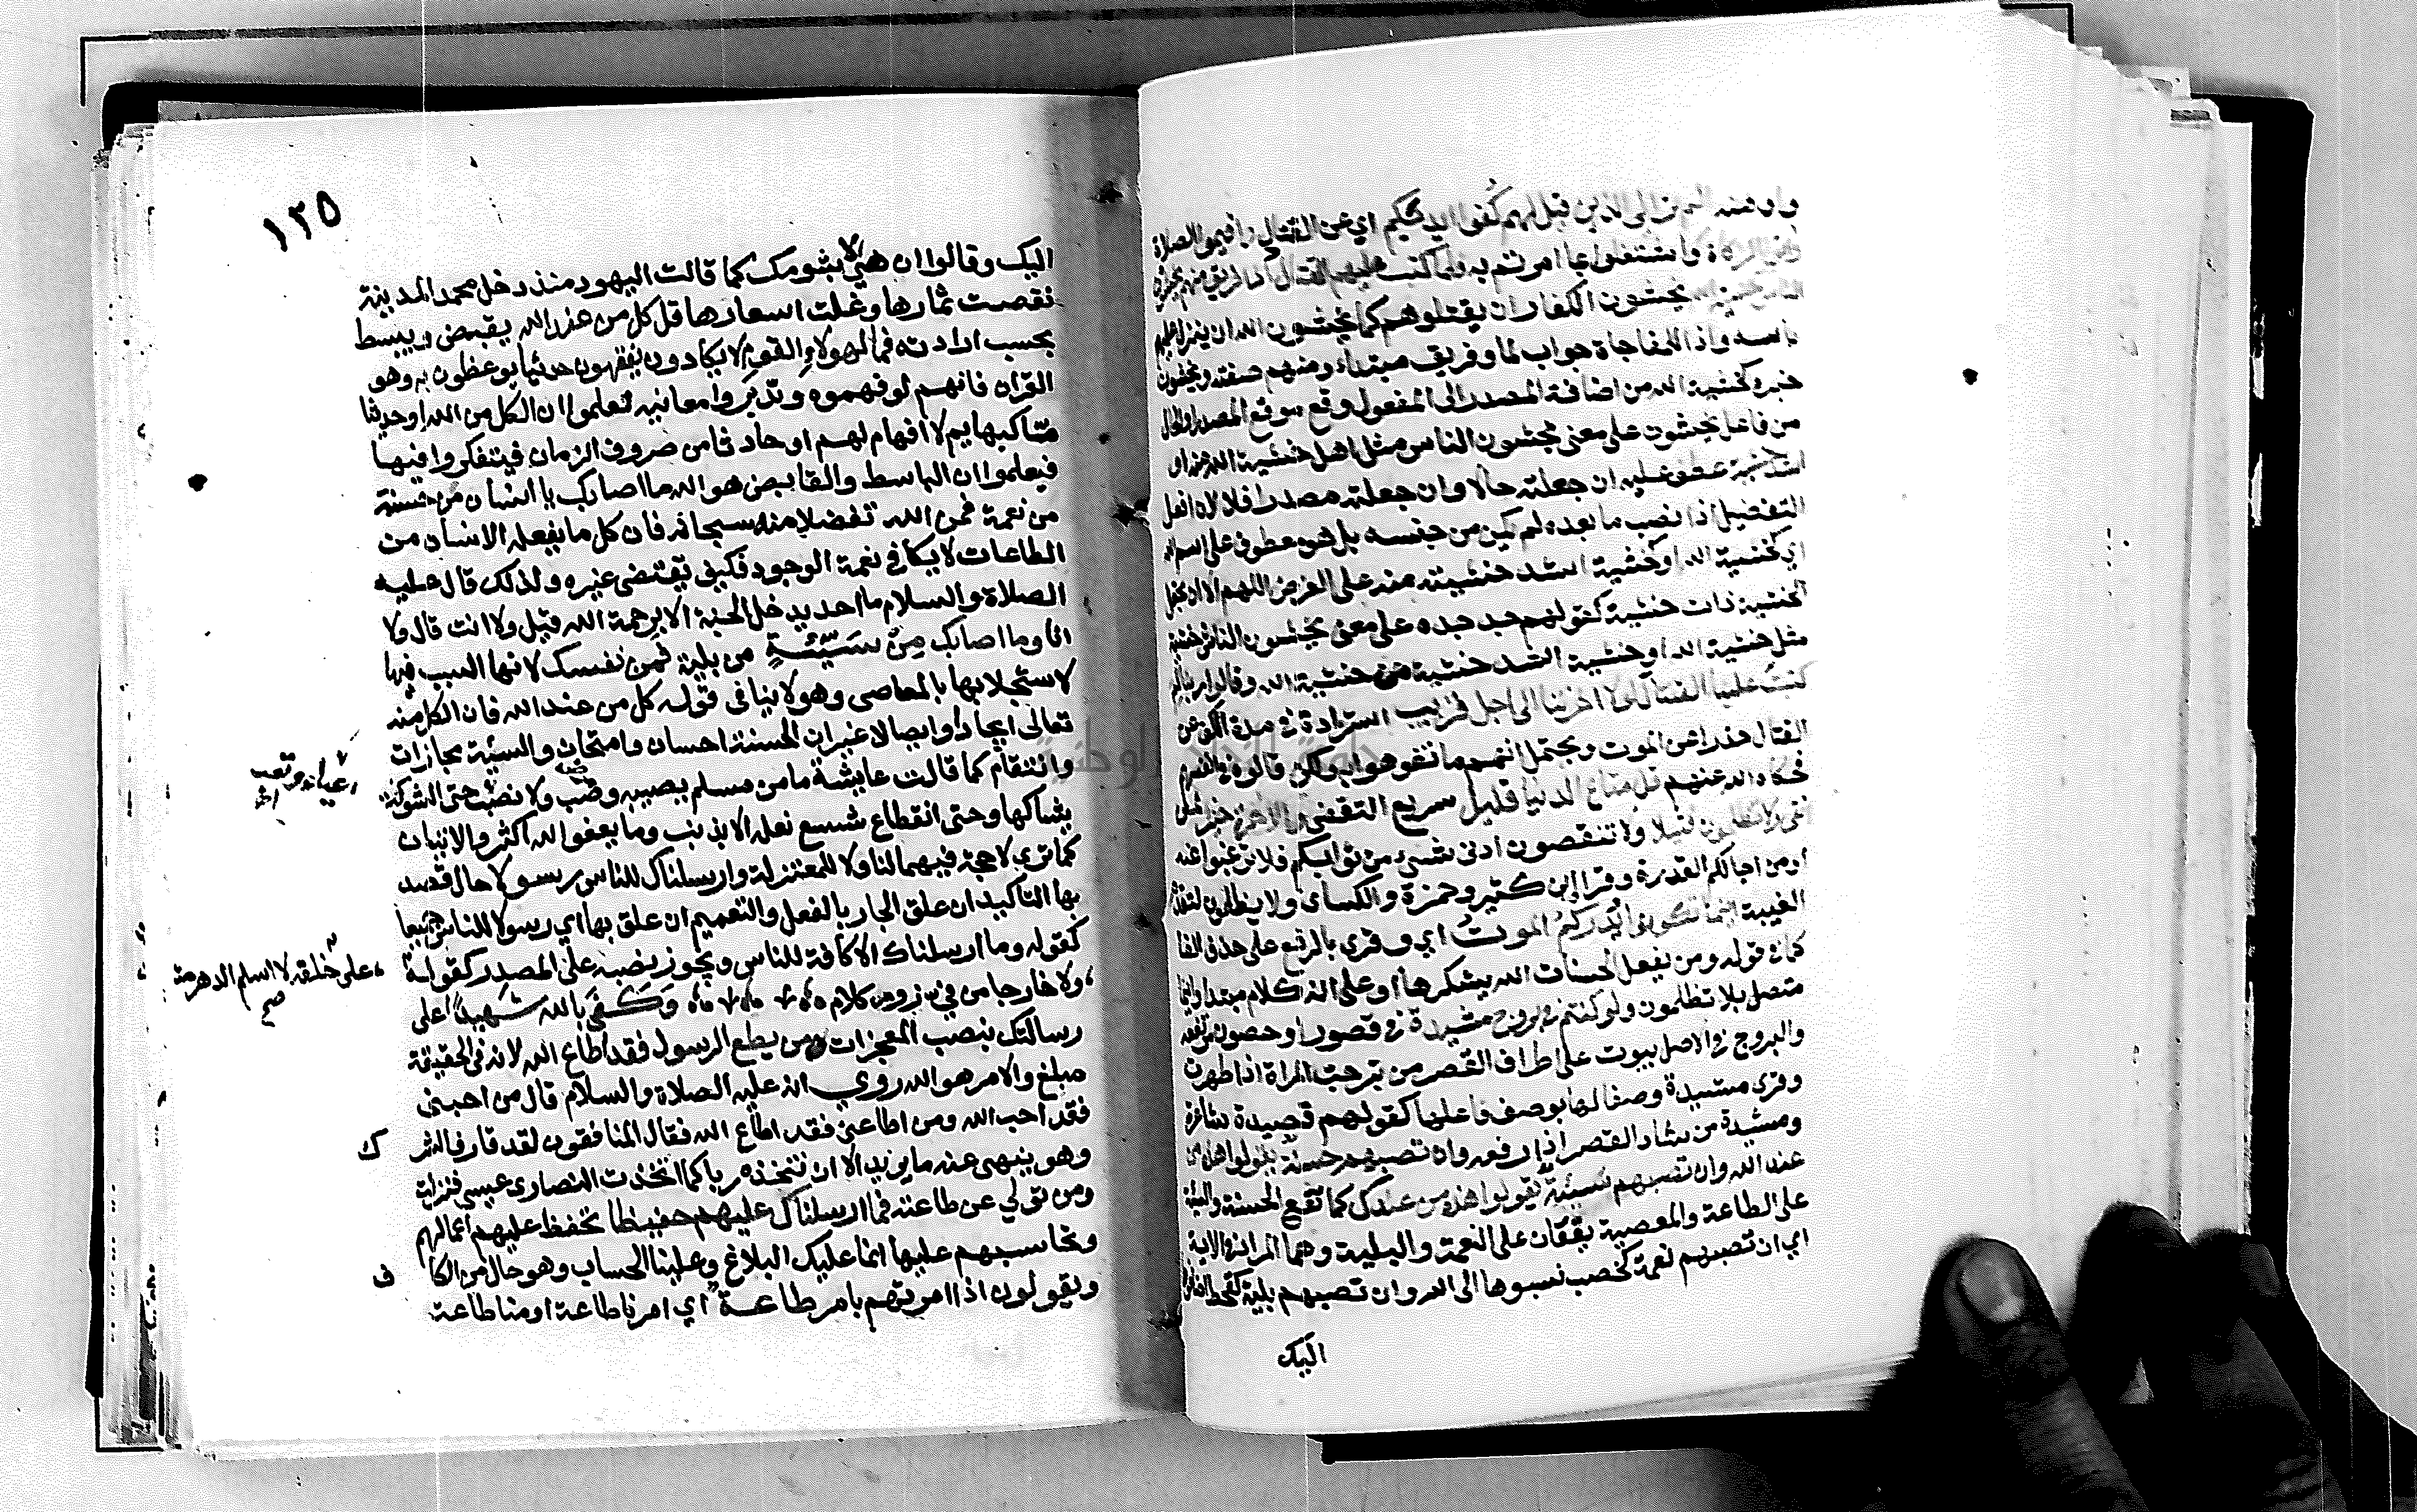 الم تر الى الذين قيل لهم كفوا ايديكم اي عن القتال واقيموا الصلاة
واشتغلوا بما امرتم به فلما كتب عليهم القتال اذا فريق منهم يخشون
يخشون الكفار ان يقتلوهم كما يخشون الله ان ينزل عليهم
باسه واذا للمفاجاة جواب لما وفريق مبتداء ومنهم صفته ويخشون
خبره كخشية الله من اضافة المصدر الى المفعول وقع موقع المصدر او الحال
من فاعل يخشون على معنى يخشون الناس مثل اهل خشية الله منه او
اشد خشية عطف عليه ان جعلته حالا وان جعلته مصدرا فلا لان افعل
التفضيل اذا نصب ما بعده لم يكن من جنسه بل هو معطوف على اسم الله
اي كخشية الله او كخشية اشد خشيته منه على الفرض اللهم الا ان تجعل
الخشية ذات خشية كقولهم جد جده على معنى يخشون الناس خشية
مثل خشية الله او خشية اشد خشية من خشية الله وقالوا ربنا لم
كتبت علينا القتال لولا اخرتنا الى اجل قريب استزادة في مدة الكف عن
القتال حذرا عن الموت ويحتمل انهم ما تفوهوا به ولكن قالوه في انفسهم
فحكاه الله عنهم قل متاع الدنيا قليل سريع التقضي والاخرة خير لمن
اتقى ولا تظلمون فتيلا ولا تنقصون ادنى شيء من ثوابكم فلا ترغبوا عنه
او من اجالكم المقدرة وقرا ابن كثير وحمزة والكسائ ولا يظلمون لتقدم
الغيبة اينما تكونوا يدرككم الموت اي وقرى بالرفع على حذف الفا
كما في قوله ومن يفعل الحسنات الله يشكرها او على انه كلام مبتدا واينما
متصل بلا تظلمون ولو كنتم في بروج مشيدة في قصور او حصون مرتفعة
والبروج في الاصل بيوت على اطراف القصر من تبرجت المراة اذا ظهرت
وقرى مشيدة وصفا لها بوصف فاعلها كقولهم قصيدة شاعرة
ومشيدة من شاد القصر اذا رفعه وان تصبهم حسنة يقولوا هذه من
عند الله وان تصبهم سيئة يقولوا هذه من عندك كما تقع الحسنة والسيئة
على الطاعة والمعصية يقعان على النعمة والبلية وهما المراد في الاية
اي ان تصبهم نعمة كخصب نسبوها الى الله وان تصبهم بلية كقحط اضافوها
اليك
١٢٥
اليك وقالوا ان هي الا بشومك كما قالت اليهود منذ دخل محمد المدينة
نقصت ثمارها وغلت اسعارها قل كل من عند الله يقبض ويبسط
بحسب ارادته فمال هولاء القوم لا يكادون يفقهون حديثا يوعظون به وهو
القران فانهم لو فهموه وتدبروا معانيه لعلموا ان الكل من الله او حديثا
ما كبهايم لا افهام لهم او حادثا من صروف الزمان فيتفكروا فيها
فيعلموا ان الباسط والقابض هو الله ما اصابك يا انسان من حسنة
من نعمة فمن الله تفضلا منه سبحانه فان كل ما يفعله الانسان من
الطاعات لا يكافي نعمة الوجود فكيف يقتضى غيره ولذلك قال عليه
الصلاة والسلام ما احد يدخل الجنة الا برحمة الله قيل ولا انت قال ولا
انا وما اصابك من سيئة من بلية فمن نفسك لانها السبب فيها
لاستجلابها بالمعاصى وهو لا ينافى قوله كل من عند الله فان الكل منه
تعالى ايجادا وايصالا غير ان الحسنة احسان وامتحان والسيئة مجازات
وانتقام كما قالت عايشة ما من مسلم يصيبه وصب ولا نصب حتى الشوكة
يشاكها وحتى انقطاع شسع نعله الا بذنب وما يعفوا الله اكثر والايتان
كما ترى لا حجة فيهما لنا ولا للمعتزلة وارسلناك للناس رسولا حال قصد
بها التاكيد ان علق الجار بالفعل والتعميم ان علق بها اي رسولا للناس جميعا
كقوله وما ارسلناك الا كافة للناس ويجوز نصبه على المصدر كقوله
ولا خارجا من في زور كلام وكفى بالله شهيدا على
على خلفة لا اشتم الدهر
صح
رسالتك بنصب المعجزات من يطع الرسول فقد اطاع الله لانه فى الحقيقة
مبلغ والامر هو الله روي انه عليه الصلاة والسلام قال من احبنى
فقد احب الله ومن اطاعني فقد اطاع الله فقال المنافقون لقد قارف الشر
ك
وهو ينهى عنه ما يريد الا ان نتخذه ربا كما اتخذت النصارى عيسى فنزلت
ومن تولي عن طاعته فما ارسلناك عليهم حفيظا تحفظ عليهم اعمالهم
وتحاسبهم عليها انما عليك البلاغ وعلينا الحساب وهو حال من الكا
ف
ويقولون اذا امرتهم بامر طاعة اي امرنا طاعة او منا طاعة